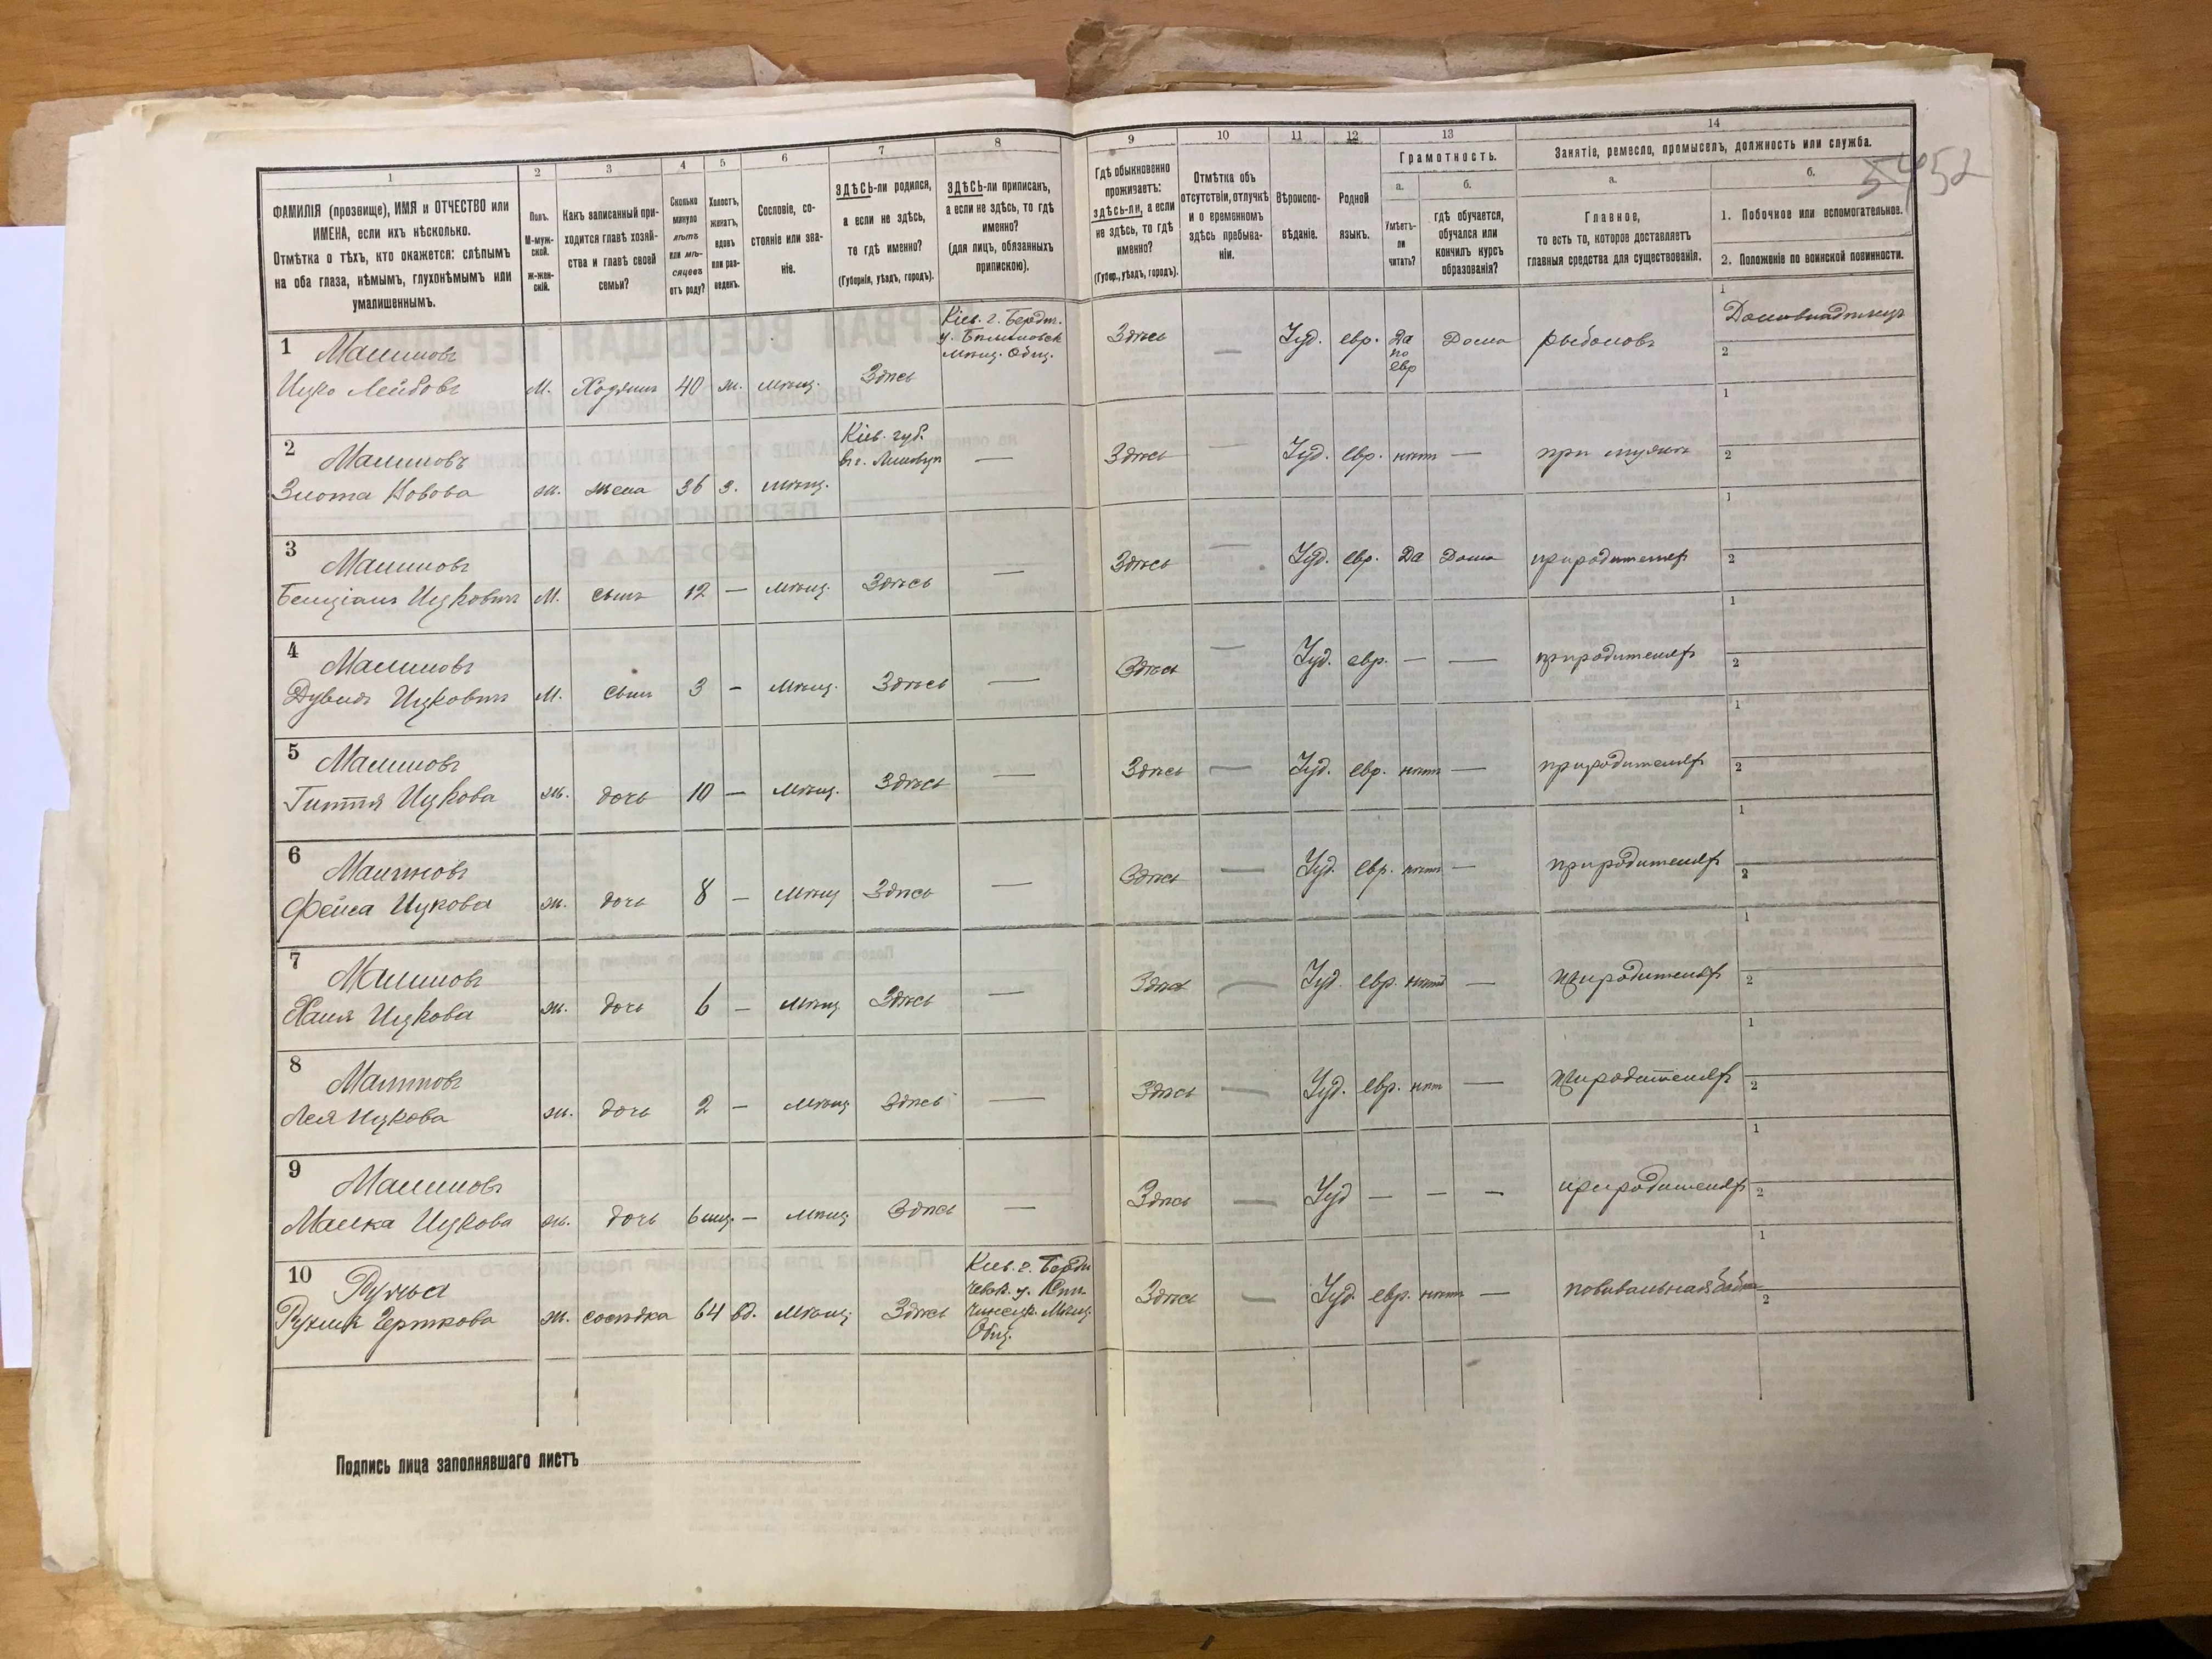 5452
1
ФАМИЛІЯ (прозвище), ИМЯ и ОТЧЕСТВО или
ИМЕНА, если ихъ нѣсколько.
Отмѣтка о тѣхъ, кто окажется: слѣпымъ
на оба глаза, нѣмымъ, глухонѣмымъ или
умалишеннымъ.
2
Полъ.
М-муж-
ской.
Ж-жен-
скій.
3
Какъ записанный при-
ходится главѣ хозяй-
ства и главѣ своей
семьи?
4
Сколько
минуло
лѣтъ
или мѣ-
сяцевъ
отъ роду?
5
Холостъ,
женатъ,
вдовъ
или раз-
веденъ.
6
Сословіе, со-
стояніе или зва-
ніе.
7
ЗДѢСЬ-ли родился,
а если не здѣсь,
то гдѣ именно?
(Губернія, уѣздъ, городъ).
8
ЗДѢСЬ-ли приписанъ,
а если не здѣсь, то гдѣ
именно?
(для лицъ, обязанныхъ
припискою).
9
Гдѣ обыкновенно
проживаетъ:
здѣсь-ли, а если
не здѣсь, то гдѣ
именно?
(Губер., уѣздъ, городъ).
10
Отмѣтка объ
отсутствіи, отлучкѣ
и о временномъ
здѣсь пребыва-
ніи.
11
Вѣроиспо-
вѣданіе.
12
Родной
языкъ.
13
Грамотность.
а.
Умѣетъ-
ли
читать?
б.
гдѣ обучается,
обучался или
кончилъ курсъ
образованія?
14
Занятіе, ремесло, промыселъ, должность или служба.
а.
Главное,
то есть то, которое доставляетъ
главныя средства для существованія.
б.
1. Побочное или вспомогательное.
2. Положеніе по воинской повинности.
1 Малиновъ
Ицко Лейбовъ М. Хозяинъ 40 ж. мѣщ. Здѣсь
Кіев. г. Бердич.
у.
мѣщ. Общ.
Здѣсь — Іуд. евр. Да по евр Дома рыболовъ
1 Домовладѣлецъ
2
2 Малиновъ
Злота ж. жена 36 з. мѣщ.
Кіев. губ.
—
Здѣсь — Іуд. евр. нѣтъ — при мужѣ
1
2
3 Малиновъ
Бенціанъ Ицковичъ М. сынъ 12 — мѣщ. Здѣсь —
Здѣсь — Іуд. евр. Да Дома при родителяхъ
1
2
4 Малиновъ
Дувидъ Ицковичъ М. сынъ 3 — мѣщ. Здѣсь —
Здѣсь — Іуд. евр. — — при родителяхъ
1
2
5 Малиновъ
Гиття Ицкова ж. дочь 10 — мѣщ. Здѣсь —
Здѣсь — Іуд. евр. нѣтъ — при родителяхъ
1
2
6 Малиновъ
Фейга Ицкова ж. дочь 8 — мѣщ Здѣсь —
Здѣсь — Іуд. евр. нѣтъ — при родителяхъ
1
2
7 Малиновъ
Ханя Ицкова ж. дочь 6 — мѣщ Здѣсь —
Здѣсь — Іуд. евр. нѣтъ — при родителяхъ
1
2
8 Малиновъ
Лея Ицкова ж. дочь 2 — мѣщ Здѣсь —
Здѣсь — Іуд. евр. нѣт — при родителяхъ
1
2
9 Малиновъ
Малка Ицкова ж. дочь 6 мц. — мѣщ Здѣсь —
Здѣсь — Іуд — — — при родителяхъ
1
2
10
Рухля ж. сосѣдка 64 вд. мѣщ. Здѣсь
Кіев. г. Берди
чевск. у.
Мѣщ.
Общ.
Здѣсь — Іуд. евр. нѣтъ — повивальная бабка
1
2
Подпись лица заполнявшаго листъ